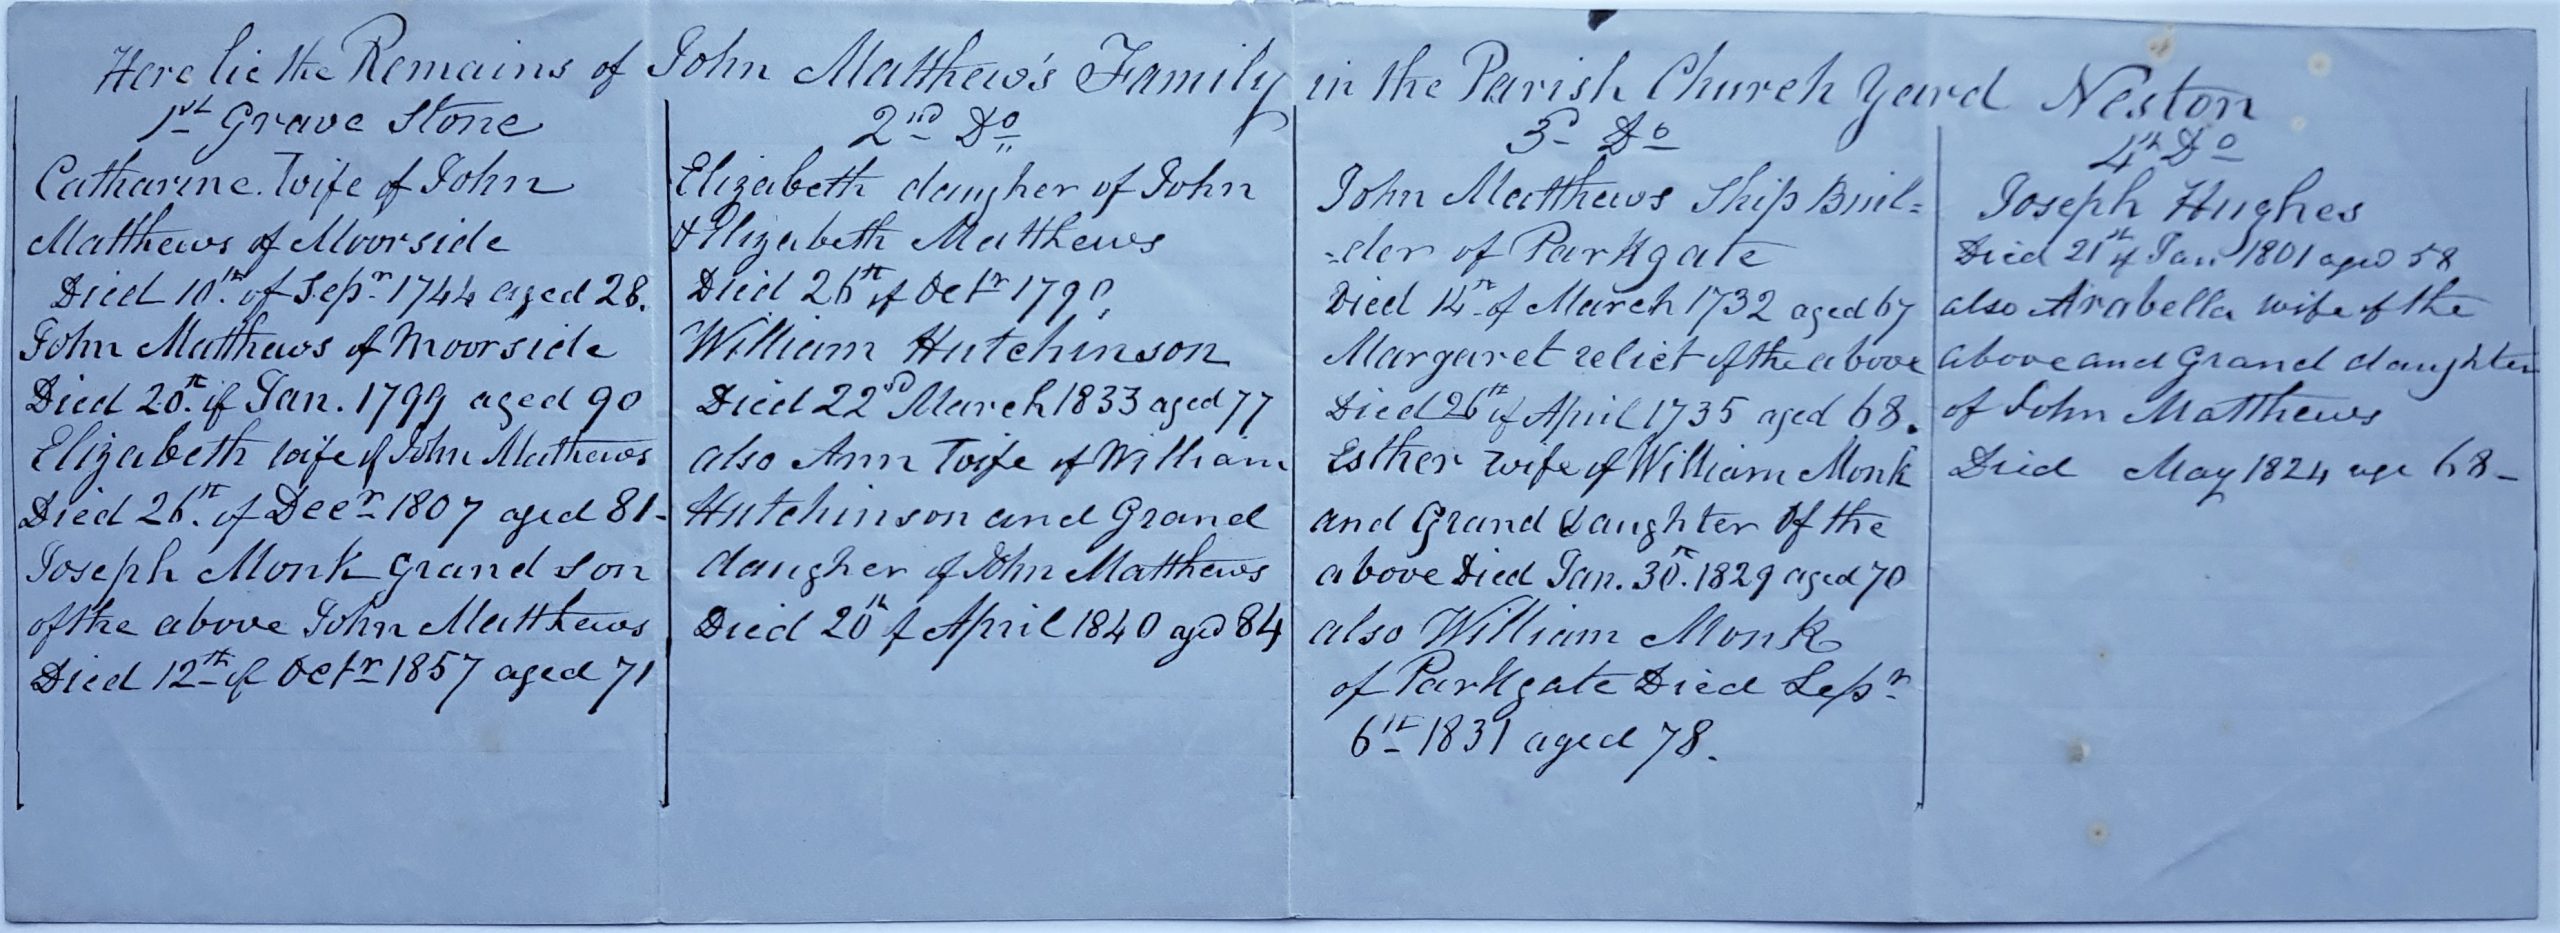 Here lie the Remains of John Matthew's Family in the Parish Church Yard Neston
1st Grave Stone
Catharine. Wife of John
Matthews of Moorside
Died 10th of Sepr 1744 aged 28.
John Matthews of Moorside
Died 20th of Jan. 1799 aged 90
Elizabeth wife of John Mathews
Died 26th of Decr 1807 aged 81-
Joseph Monk Grand son
of the above John Matthews
Died 12th of Octr 1857 aged 71
2nd Do
Elizabeth daugher of John
& Elizabeth Matthews
Died 26th of Octr 1790
William Hutchinson
Died 22nd March 1833 aged 77
also Ann Wife of William
Hutchinson and Grand
daugher of John Matthews
Died 20th of April 1840 aged 84
3d Do
John Matthews Ship Buil=
-der of Parkgate
Died 14th of March 1732 aged 67
Margaret relict of the above
Died 26th of April 1735 aged 68.
Esther wife of William Monk
and Grand Daughter Of the
above Died Jan. 30th. 1829 aged 70
also William Monk
of Parkgate Died Sepr
6th 1831 aged 78.
4th Do
Joseph Hughes
Died 21st of Jan 1801 aged 58
also Arabella wife of the
above and Grand daughter
of John Matthews
Died May 1824 age 68-